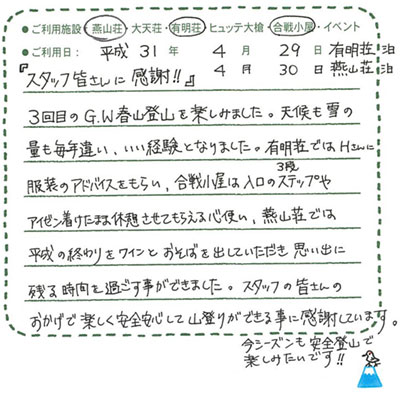 ●ご利用施設・燕山荘・大天荘・有明荘・ヒュッテ大槍・合戦小屋・イベント
●ご利用日：平成 31 年 4 月 29 日 有明荘 泊
4 月 30 日 燕山荘 泊
『スタッフ皆さんに感謝!!』
3回目のG.W春山登山を楽しみました。天候も雪の
量も毎年違い、いい経験となりました。有明荘ではHさんに
服装のアドバイスをもらい、合戦小屋は入口の3段ステップや
アイゼン着けたまま休憩させてもらえる心使い、燕山荘では
平成の終わりをワインとおそばを出していただき思い出に
残る時間を過ごす事ができました。スタッフの皆さんの
おかげで楽しく安全安心して山登りができる事に感謝しています。
今シーズンも安全登山で
楽しみたいです!!